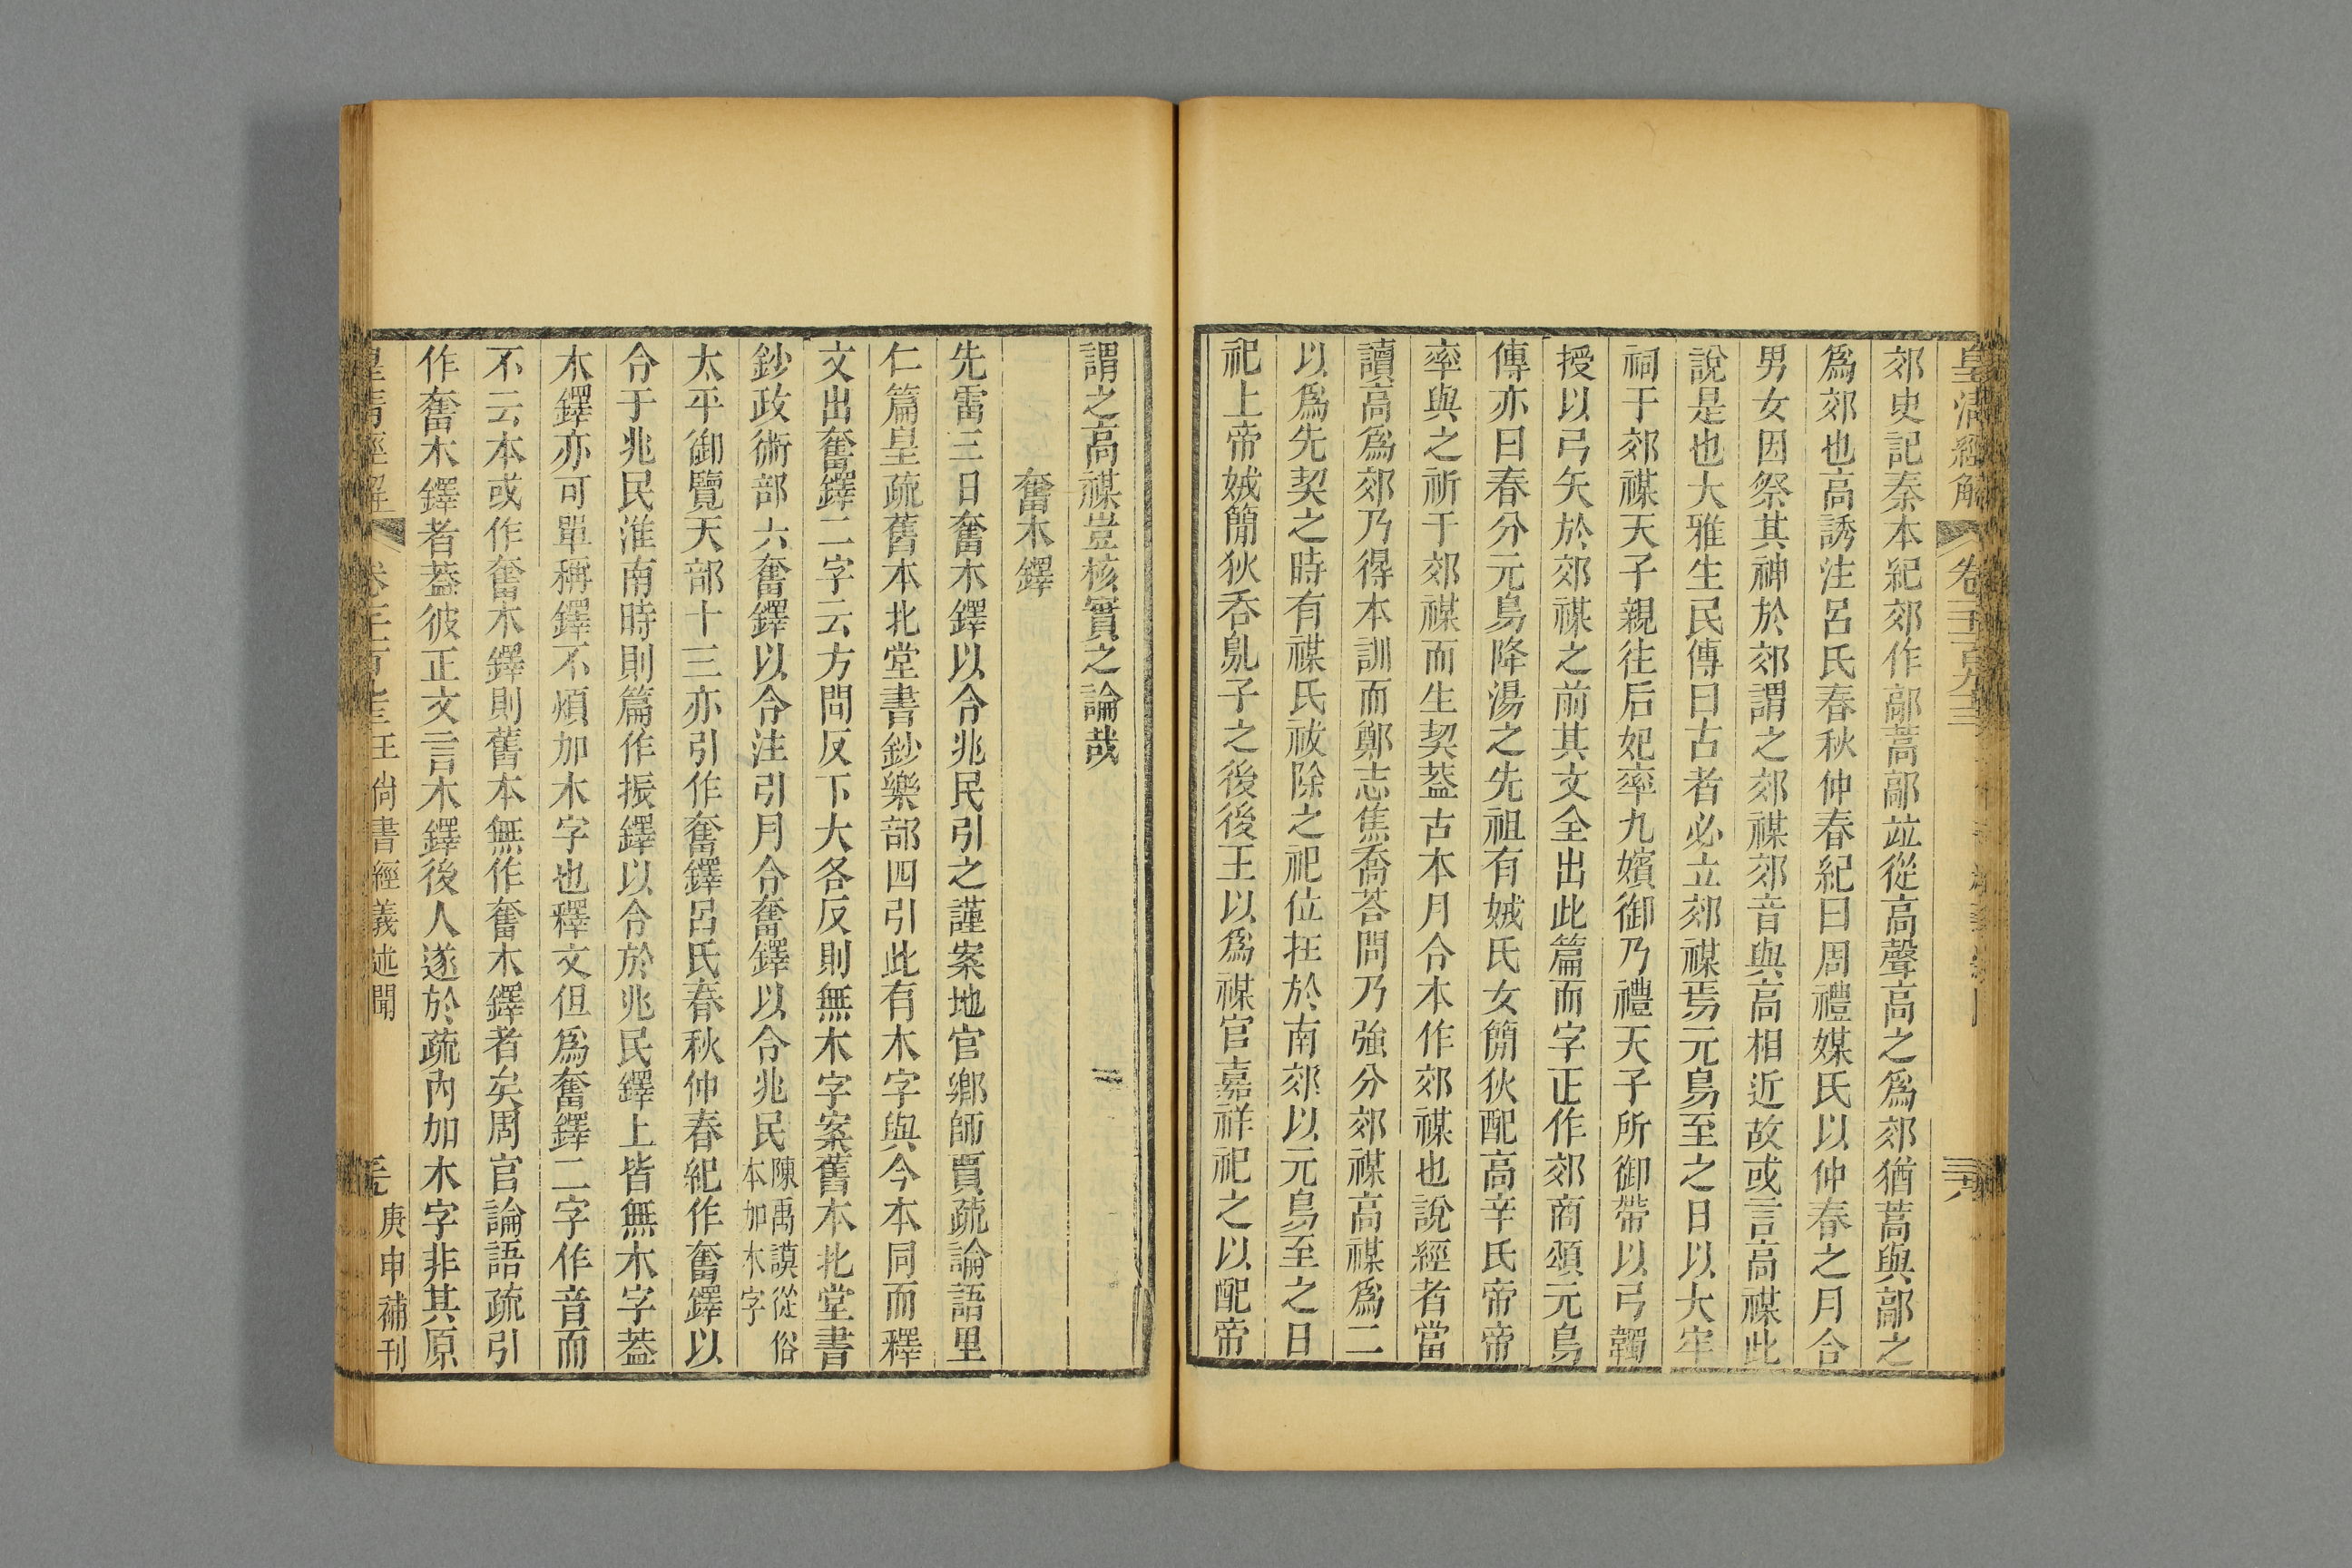 皇清經解 卷
郊史記秦本紀郊作鄗蒿鄗竝從高聲高之爲郊猶蒿與鄗之
爲郊也高誘注呂氏春秋仲春紀曰周禮媒氏以仲春之月合
男女因祭其神於郊謂之郊禖郊音與高相近故或言高禖此
說是也大雅生民傳曰古者必立郊禖焉元鳥至之日以大牢
祠于郊禖天子親往后妃率九嬪御乃禮天子所御帶以弓韣
授以弓矢於郊禖之前其文全出此篇而字正作郊商頌元鳥
傳亦曰春分元鳥降湯之先祖有娀氏女簡狄配高辛氏帝帝
率與之祈于郊禖而生契葢古本月令本作郊禖也說經者當
讀高爲郊乃得本訓而鄭志焦喬荅問乃強分郊禖高禖爲二
以爲先契之時有禖氏祓除之祀位在於南郊以元鳥至之日
祀上帝娀簡狄吞鳦子之後後王以爲禖官嘉祥祀之以配帝
謂之高禖豈核實之論哉
奮木鐸
先雷三日奮木鐸以令兆民引之謹案地官鄉師賈疏論語里
仁篇皇疏舊本北堂書鈔樂部四引此有木字與今本同而釋
文出奮鐸二字云方問反下大各反則無木字案舊本北堂書
鈔政術部六奮鐸以令注引月令奮鐸以令兆民陳禹謨從俗本加木字
太平御覽天部十三亦引作奮鐸呂氏春秋仲春紀作奮鐸以
令于兆民淮南時則篇作振鐸以令於兆民鐸上皆無木字葢
木鐸亦可單稱鐸不煩加木字也釋文但爲奮鐸二字作音而
不云本或作奮木鐸則舊本無作奮木鐸者矣周官論語疏引
作奮木鐸者葢彼正文言木鐸後人遂於疏內加木字非其原
皇清經解 卷 王尙書經義述聞 庚申補刊